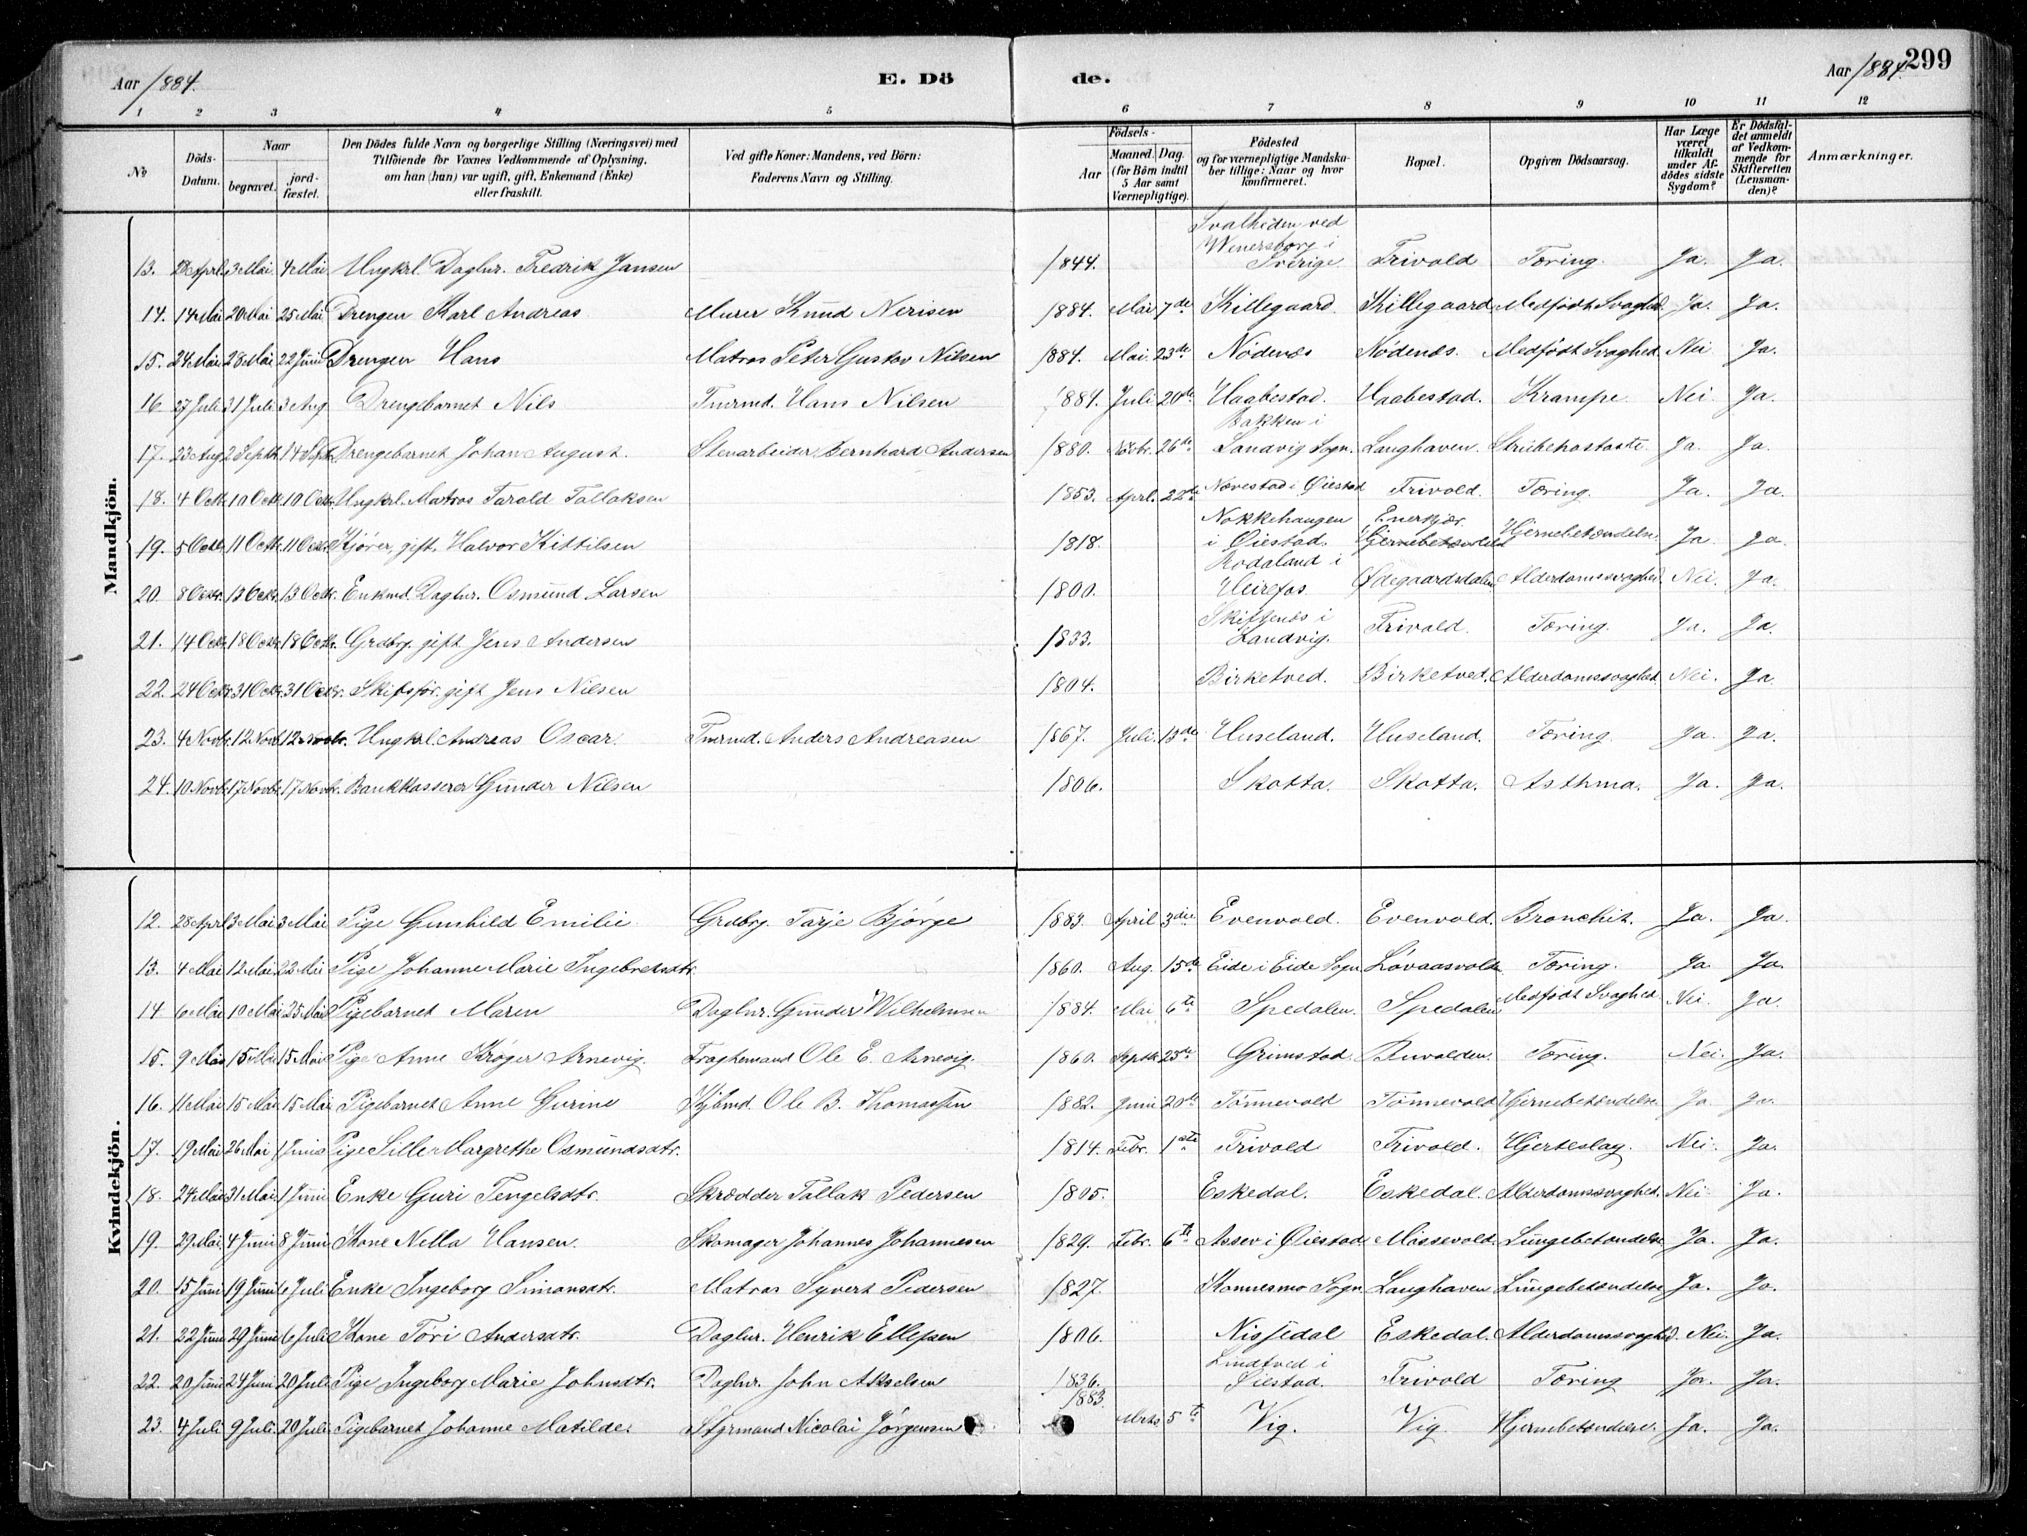 Aar 1884.
E. Dö
de.
Aar 1884.
299
1 2 3 4 5 6 7 8 9 10 11 12
No
Döds-Datum.
Naar
begravet.
jordfæstet.
Den Dödes fulde Navn og borgerlige Stilling (Næringsvei) med
Tilföiende for Voxnes Vedkommende af Oplysning,
om han (hun) var ugift, gift, Enkemand (Enke)
eller fraskilt.
Ved gifte Koner: Mandens, ved Börn:
Faderens Navn og Stilling.
Födsels-
Aar
Maaned. Dag.
(for Börn indtil
5 Aar samt
Værnepligtige).
Födested
og for værnepligtige Mandskaber tillige: Naar og hvor konfirmeret.
Bopæl.
Opgiven Dödsaarsag.
Har Læge været tilkaldt under Afdödes sidste Sygdom?
Er Dödsfaldet anmeldt af Vedkommende for Skifteretten (Lensmanden)?
Anmærkninger.
Mandkjön.
13. 28 Apri. 3 Mai 4 Mai Ungkrl. Daglnr. Fredrik Jansen 1844. Svalheden ved Wenersborg i Sverige. Frivold Tæring. Ja. Ja.
14. 14 Mai 20 Mai 25 Mai Drengen Karl Andreas Murer Knud Nerisen 1884. Mai 7de Killegaard. Killegaard. Medfødt Svaghed. Ja. Ja.
15. 24 Mai 28 Mai 22 Juni Drengen Hans Matros Peter Gustav Nilsen 1884. Mai. 23de Nødenæs Nødenæs. Medfødt Svaghed. Nei Ja.
16 27 Juli 31 Juli 3 Aug. Drengebarnet Nils Tmrmd. Hans Nilsen 1884. Juli 20de Haabestad. Haabestad. Krampe. Nei. Ja.
17. 23 Aug 2 Septb. 14 Sept. Drengebarnet Johan August. Stenarbeider Bernhard Andersen 1880. Novbr. 26de Bakken i Landvig Sogn. Langhaven. Strubehostaste Ja. Ja.
18. 4 Octb. 10 Octb. 10 Octb. Ungkrl. Matros Tarald Tallaksen 1853. Aprl. 22de Nævestad i Øiestad Frivold. Tæring. Ja. Ja.
19. 5 Octb. 11 Octb. 11 Octb. Kjører, gift, Halvor Kittilsen 1818. Nokkehaugen i Øiestad. Enerkjær. Hjernebetændelse. Ja. Ja.
20. 8 Octb. 13 Octb. 13 Octb. Enkmd. Daglnr. Osmund Larsen 1800. Rodaland i Heirefos. Ødegaardsdalen Alderdomssvaghed. Nei. Ja.
21. 14 Octb. 18 Octb. 18 Octbr. Grdbrg. gift Jens Andersen 1833. Skiftenæs i Landvig. Frivold. Tæring. Ja. Ja.
22. 24 Octb. 31 Octb. 31 Octbr. Skibsfør. gift Jens Nilsen 1804. Birketved. Birketved. Alderdomssvaghed. Nei. Ja.
23. 4 Novb. 12 Novb. 12 Novbr. Ungkrl. Andreas Oscar. Tmrmd. Anders Andreasen 1867. Juli. 13de Huseland. Huseland. Tæring. Ja. Ja.
24. 10 Novb. 17 Novb. 17 Novb. Bankkasserer Gunder Nilsen 1806. Skotta. Skotta. Asthma. Ja. Ja.
Kvindekjön.
12. 28 Aprl 3 Mai 3 Mai Pige Gunhild Emilie Grdbrg. Tarje Bjørge 1883. April 3die Evenvold. Evenvold. Bronchit. Ja. Ja.
13. 4 Mai 12 Mai 22 Mai Pige Johanne Marie Ingebretsdtr. 1860. Aug. 15de Eide i Eide Sogn Løvaasvold Tæring. Ja Ja.
14 6 Mai 10 Mai 25 Mai Pigebarnet Maren Daglnr. Gunder Wilhelmsen 1884. Mai 6te Spedalen. Spedalen Medfødt Svaghed. Nei. Ja
15. 9 Mai 15 Mai 15 Mai Pige Anne Krøger Arnevig. Fragtemand Ole E. Arnevig 1860. Septb. 23de Grimstad. Tæring. Nei. Ja.
16. 11 Mai 15 Mai 15 Mai Pigebarnet Anne Gurine Kjbmd. Ole B. Thomassen 1882. Juni 20de Tønnevold Tønnevold Hjernebetændelse. Ja. Ja.
17. 19 Mai 26 Mai 1 Juni Pige Sille Margrethe Osmundsdtr. 1814. Febr. 1ste Frivold Frivold. Hjerteslag. Nei. Ja.
18. 24 Mai 31 Mai 1 Juni Enke Guri Tengelsdtr. Skrædder Tallak Pedersen 1805. Eskedal. Eskedal. Alderdomssvaghed. Nei. Ja.
19. 29 Mai 4 Juni 8 Juni Kone Nella Hansen. Skomager Johannes Johannesen 1829. Febr. 6te Assev i Øiestad Møssevold. Lungebetændelse Ja. Ja.
20. 15 Juni 19 Juni 6 Juli Enke Ingeborg Simonsdtr. Matros Syvert Pedersen 1827. Konnesmo Sogn. Langhaven Lungebetændelse Ja. Ja.
21. 22 Juni 29 Juni 6 Juli Kone Tori Andersdtr. Daglnr. Henrik Ellefsen 1806. Nissedal Eskedal. Alderdomssvaghed. Nei. Ja.
22. 20 Juni 24 Juni 20 Juli Pige Ingeborg Marie Johnsdtr. Daglnr. John Akselsen 1836. Lindtved i Øiestad. Frivold Tæring Ja. Ja.
23. 4 Juli 9 Juli 20 Juli. Pigebarnet Johanne Matilde. Styrmand Nicolai Jørgensen 1883. Mrts 5te Vig. Vig. Hjernebetændelse. Ja. Ja.